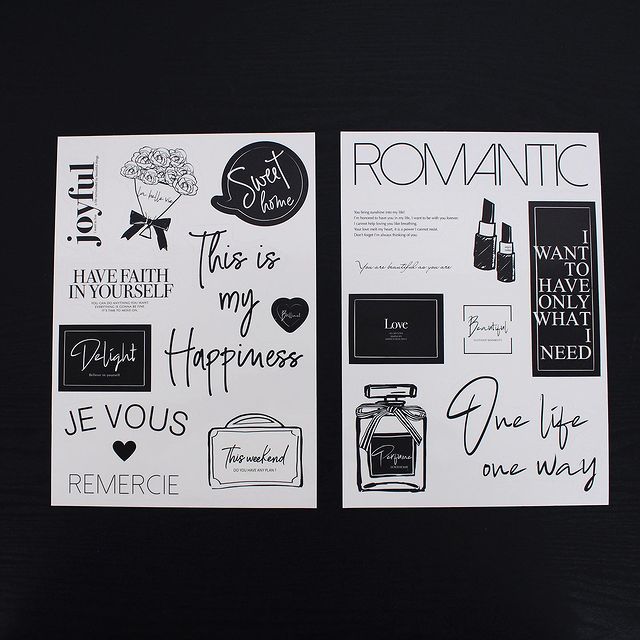 joyful
La belle vie
Sweet
home
This is
my
Happiness
HAVE FAITH
IN YOURSELF
YOU CAN DO ANYTHING YOU WANT.
EVERYTHING IS GONNA BE FINE
IT'S TIME TO MOVE ON.
Delight
Believe in yourself
JE VOUS
REMERCIE
This weekend
DO YOU HAVE ANY PLAN ?
ROMANTIC
You bring sunshine into my life!
I'm honored to have you in my life, I want to be with you forever.
I cannot help loving you like breathing.
Your love melt my heart, it is a power I cannot resist.
Don't forget I'm always thinking of you.
You are beautiful as you are
I
WANT
TO
HAVE
ONLY
WHAT
I
NEED
Love
Beautiful
Perfume
One life
one way